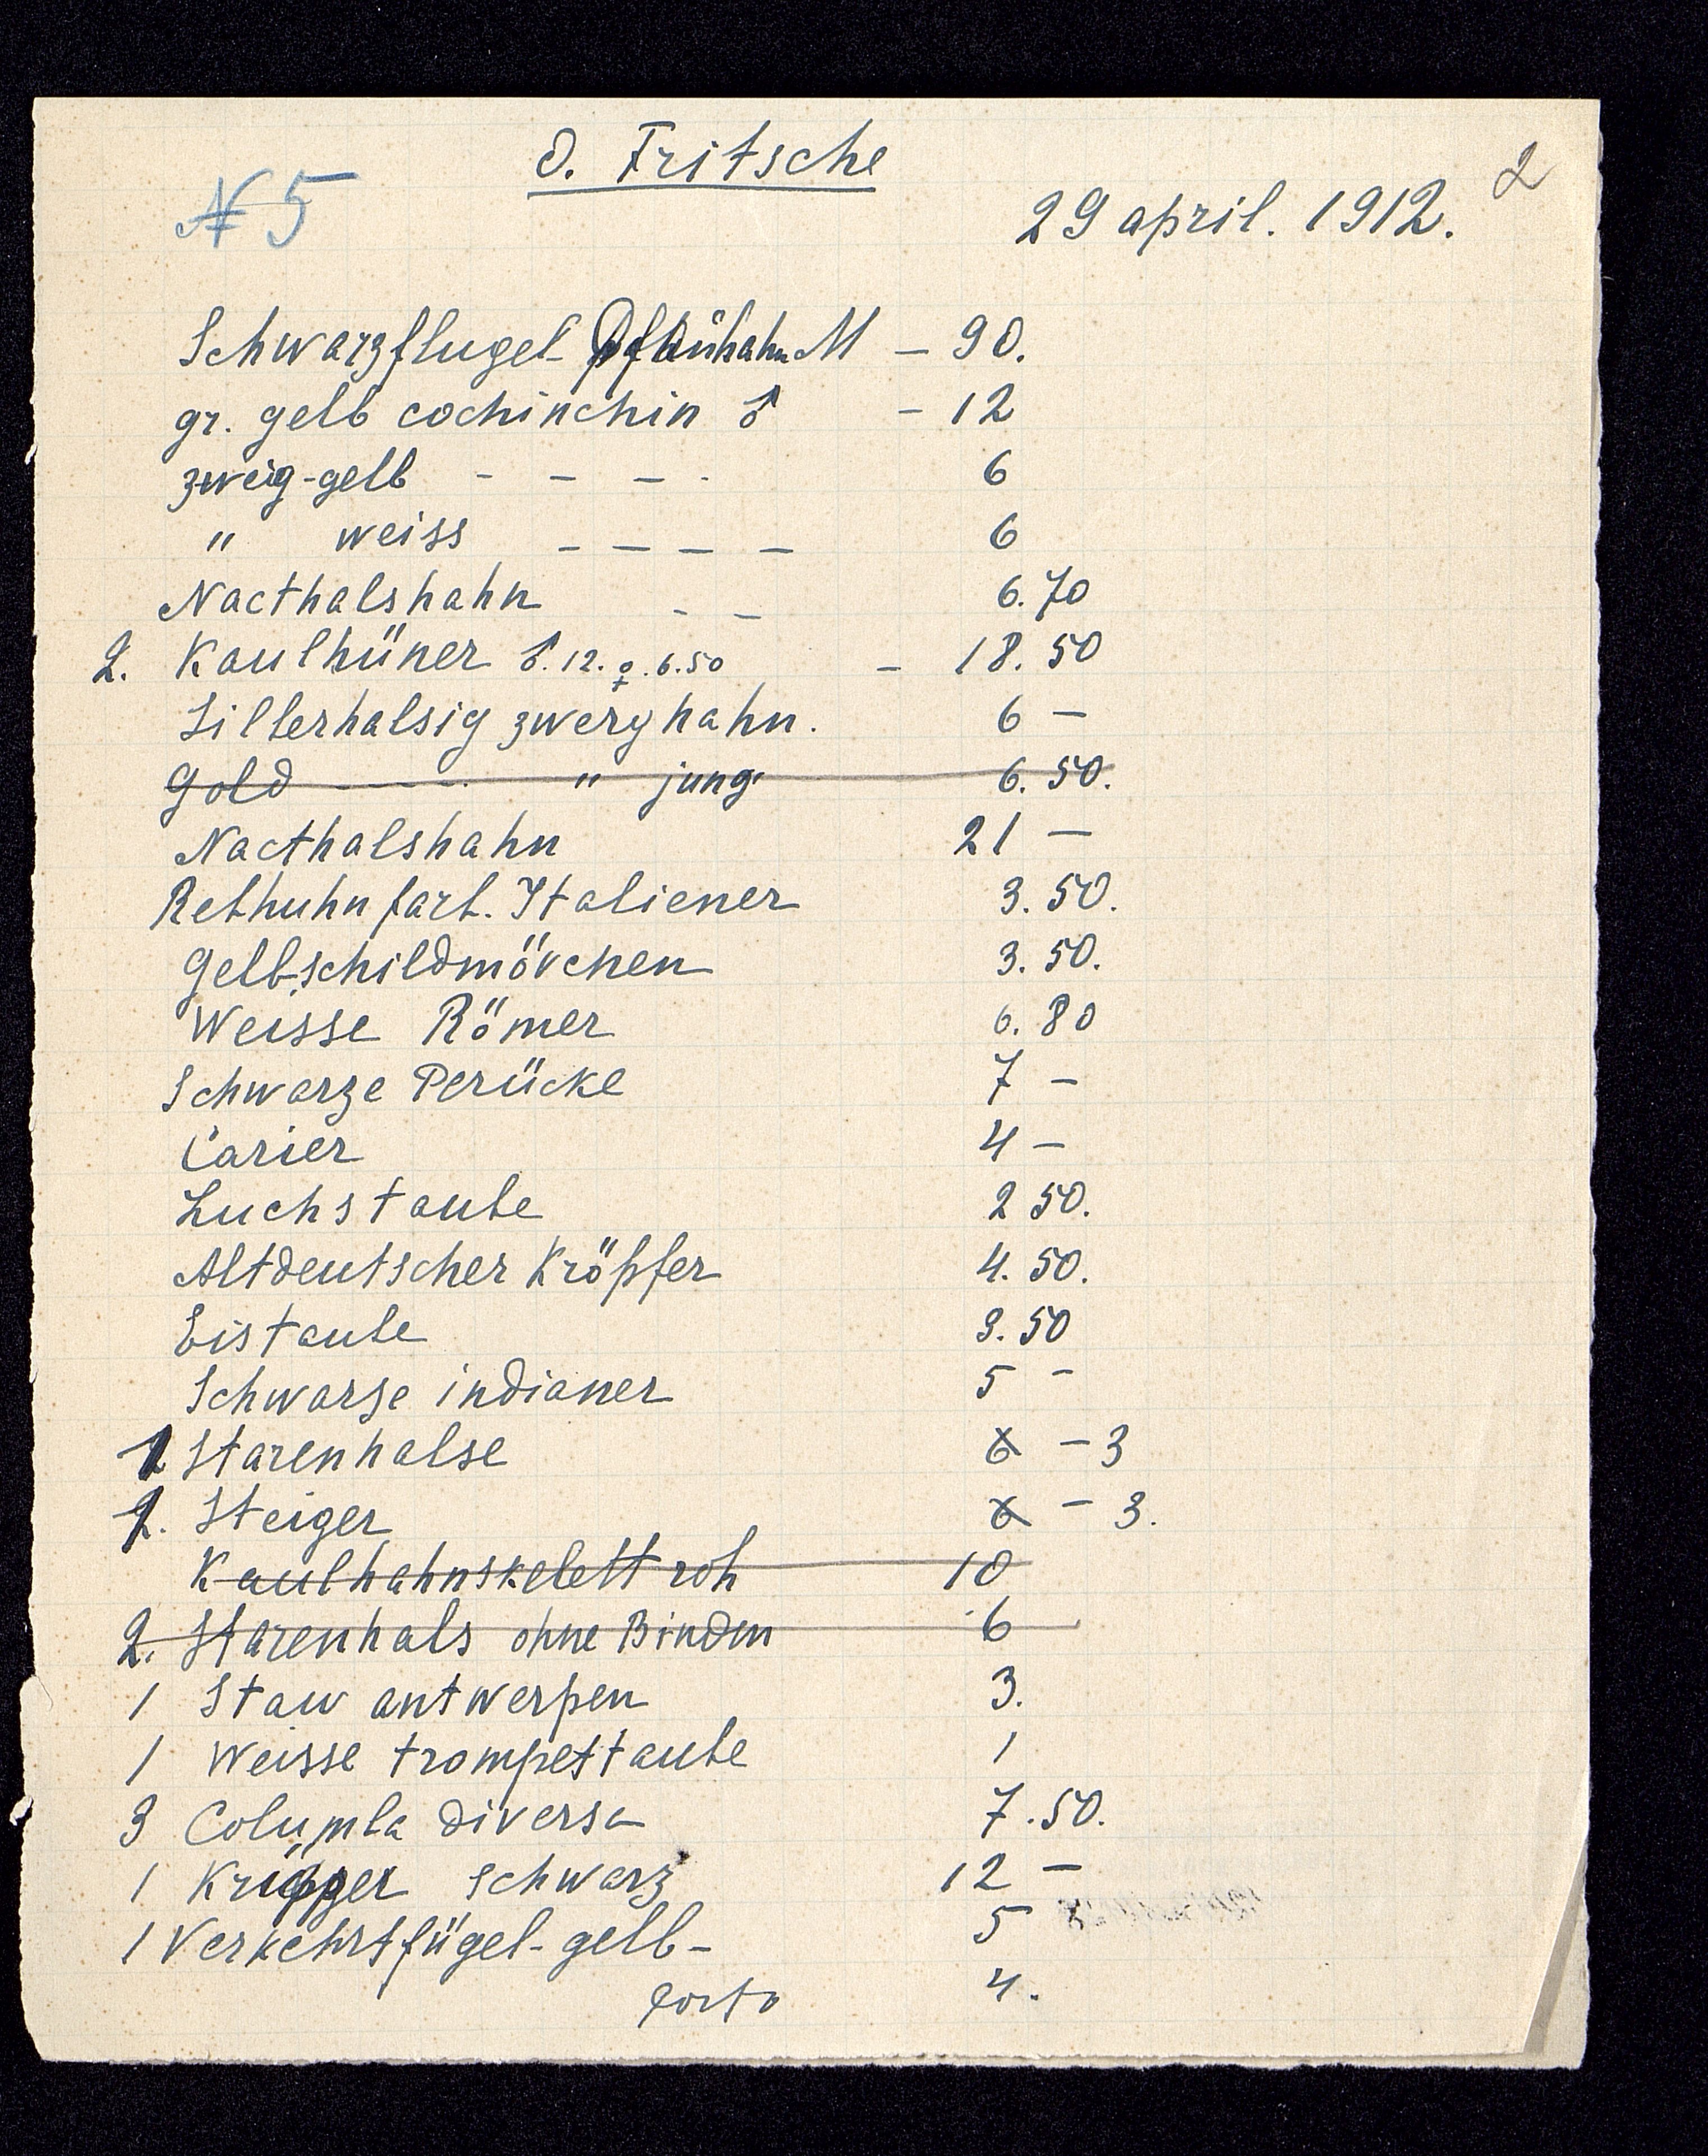 O. Fritsche
№ 5
2
29 april. 1912.
Schwarzflugel M — 90.
gr. gelb cochinchin ♂ — 12
zweig-gelb - - - - 6
" weiss — — — — 6
Nacthalshahn - - 6.70
2. Kaulhüner ♂. 12. ♀. 6.50 — 18.50
Silberhalsig zwerghahn. 6 —
Gold ---- " jung. 6.50.
Nacthalshahn 21 —
Rebhuhn farb. Italiener 3.50.
Gelbschildmövchen 3.50.
Weisse Römer 6.80
Schwarze Perücke 7 —
Carier 4 —
Luchstaube 2 50.
Altdeutscher Kröpfer 4.50.
Eistaube 3.50
Schwarze indianer 5 -
1 Starenhalse 6 — 3
1. Steiger 6 — 3.
Kaulhahnskelett roh 10
2. Starenhals ohne Binden 6
1 Staw antwerpen 3.
1 Weisse trompettaube 1
3 Columba diversa 7.50.
1 schwarz 12 —
1 Verkehrtfügel-gelb- 5
Porto 4.